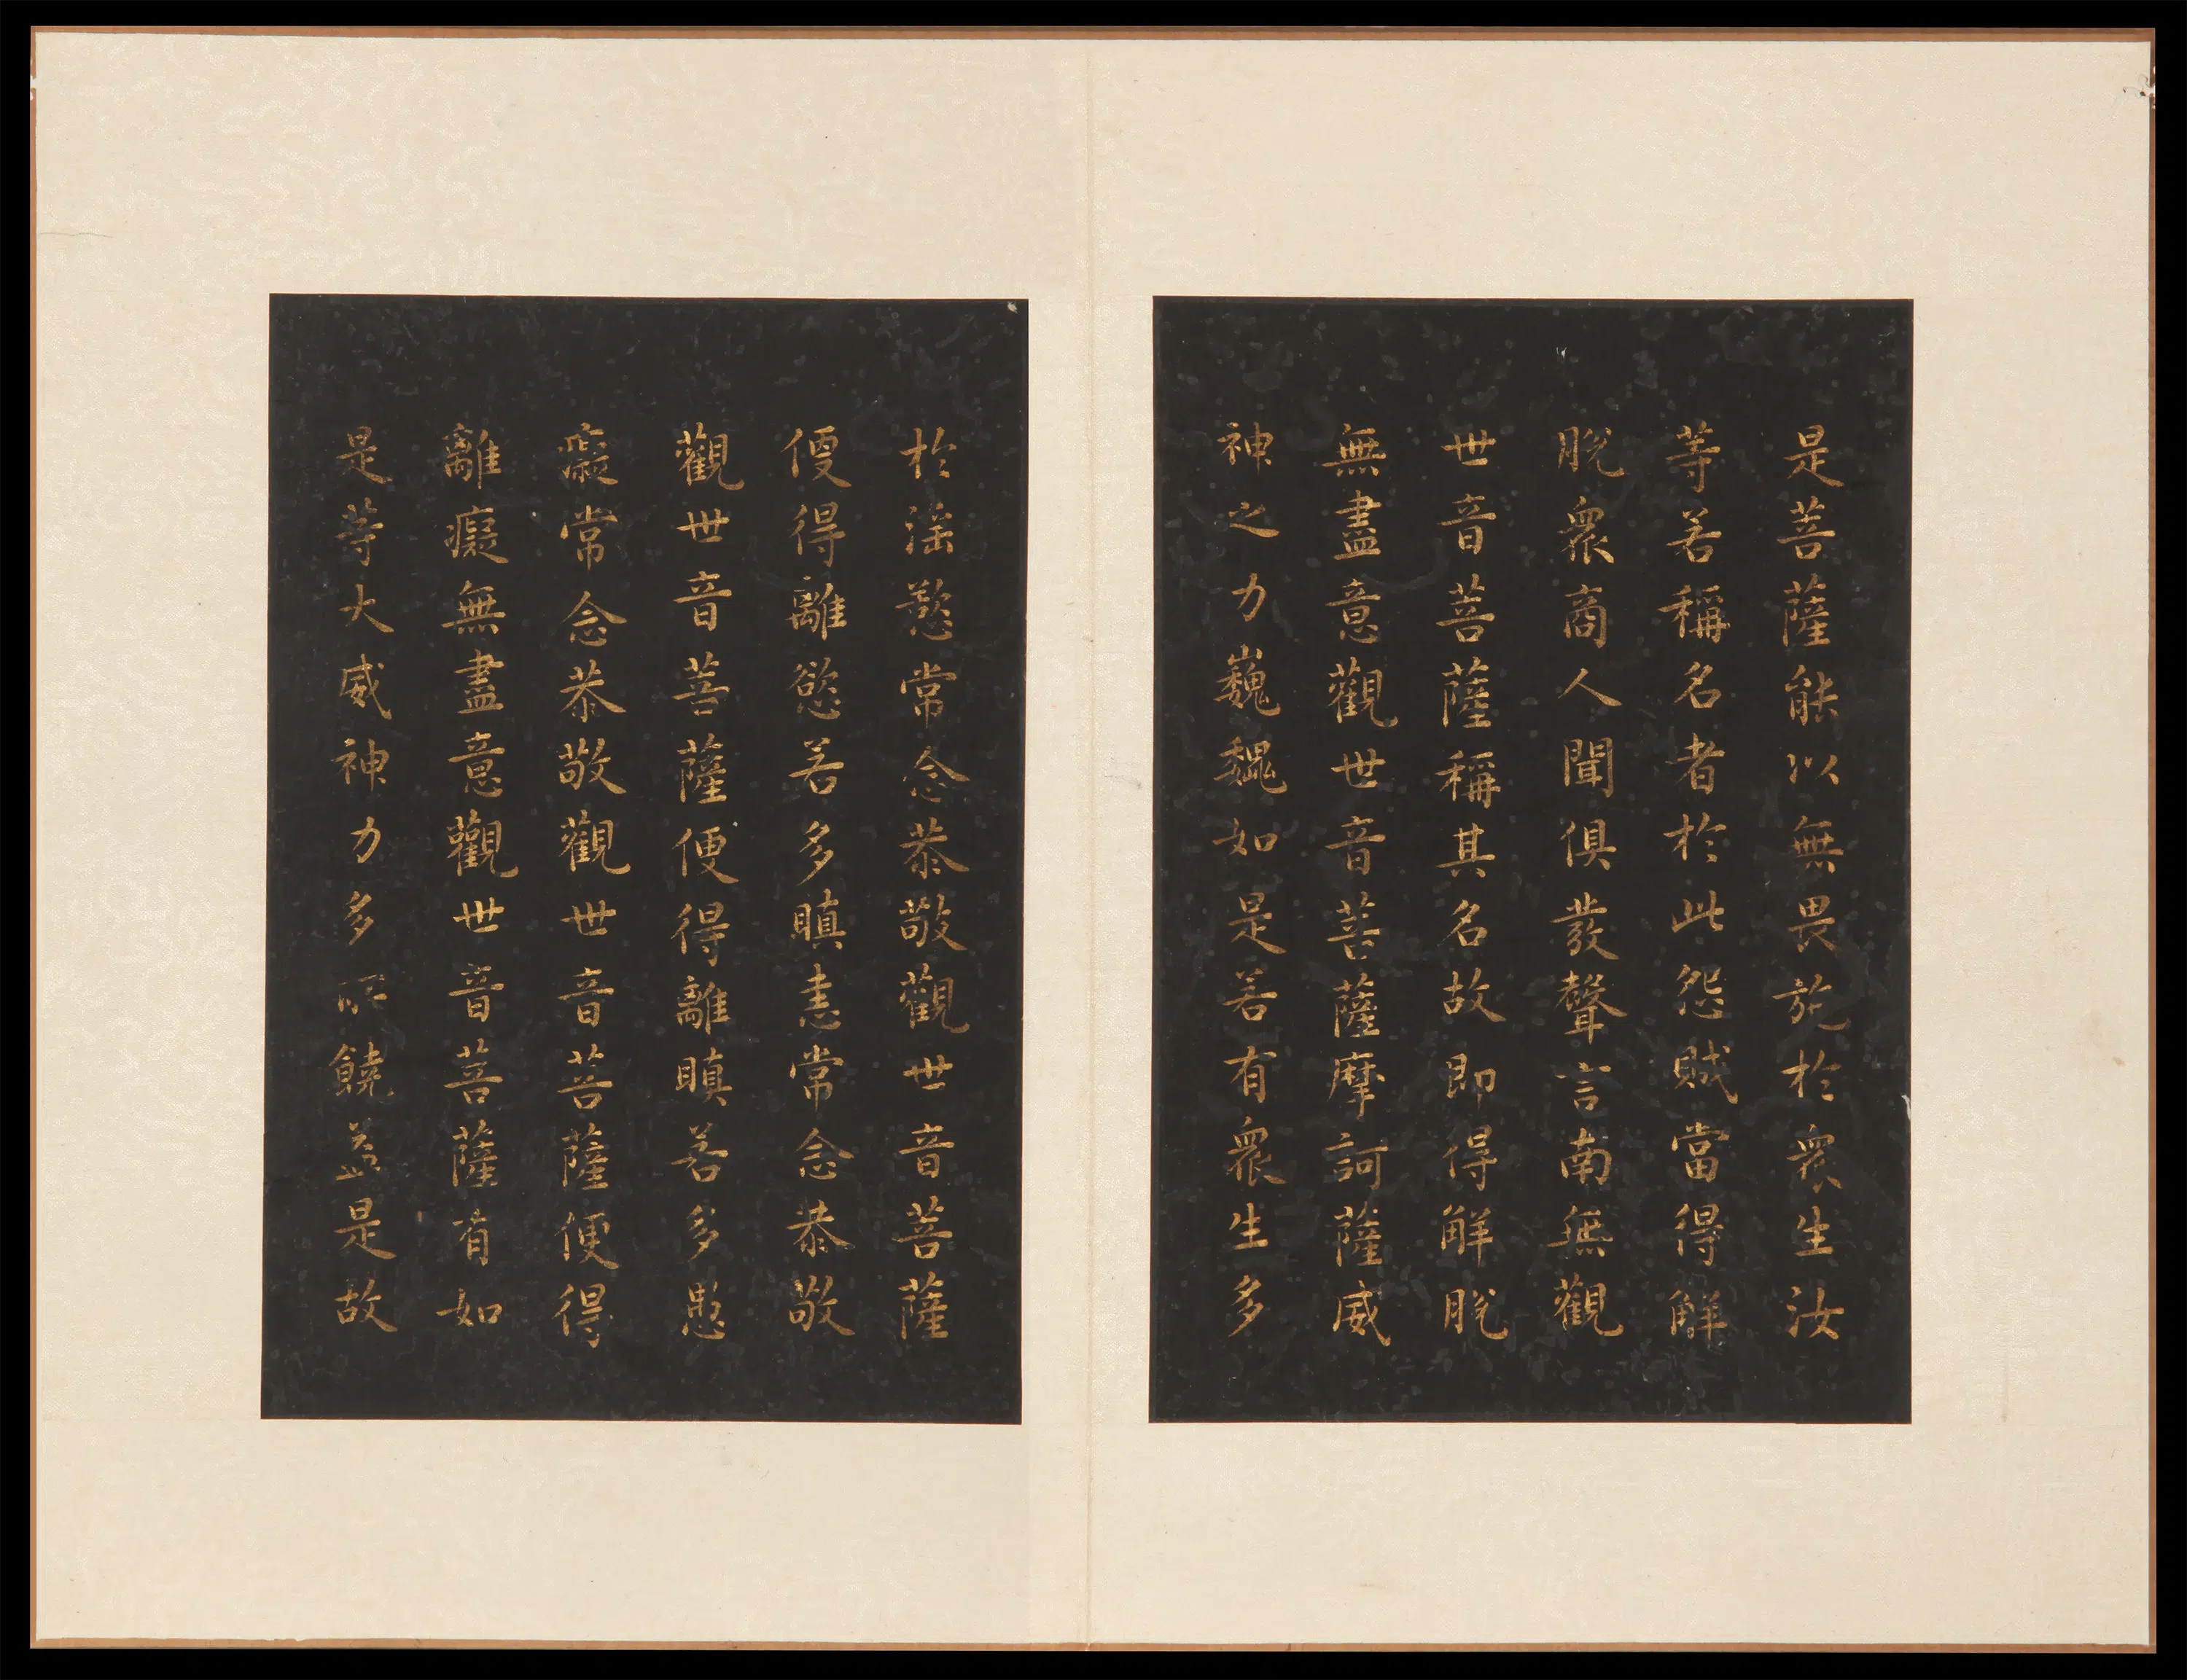 是菩薩能以無畏施於衆生汝
等若稱名者於此怨賊當得解
脫衆商人聞俱發聲言南無觀
世音菩薩稱其名故即得解脫
無盡意觀世音菩薩摩訶薩威
神之力巍巍如是若有衆生多
於淫慾常念恭敬觀世音菩薩
便得離慾若多瞋恚常念恭敬
觀世音菩薩便得離瞋若多愚
癡常念恭敬觀世音菩薩便得
離癡無盡意觀世音菩薩有如
是等大威神力多所饒益是故